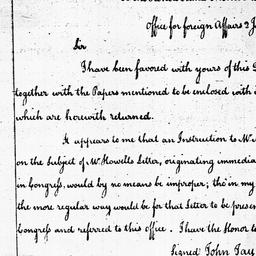 Office for foreign Affairs 2 J
Sir
I have been favored with yours of this D
together with the Papers mentioned to be enclosed with i
which are herewith returned.
It appears to me that an Instruction to Mr
on the subject of Mr Howells Letter, originating immedia
in Congress, would by no means be improper; tho' in my
the more regular way would be for that Letter to be presen
Congress and referred to this office. I have the Honor to
Signed John Jay